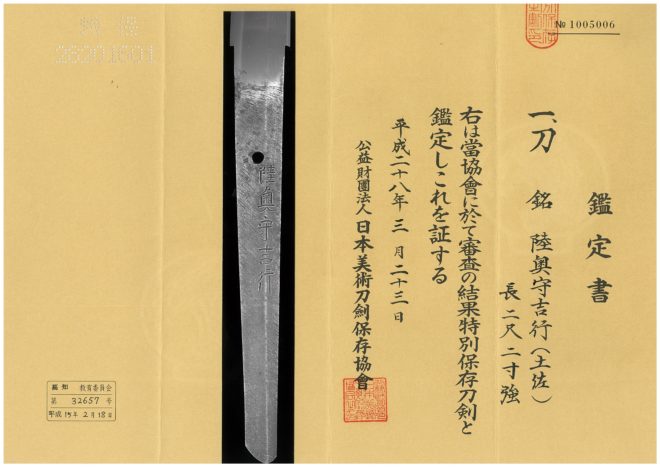 № 1005006
鑑定書
一、刀 銘 陸奥守吉行(土佐)
長二尺二寸強
右は當協會に於て審査の結果特別保存刀剣と
鑑定しこれを証する
平成二十八年三月二十三日
公益財團法人 日本美術刀劍保存協會
陸奥守吉行
28201601
高知 教育委員会
第 32657 号
平成15年2月18日